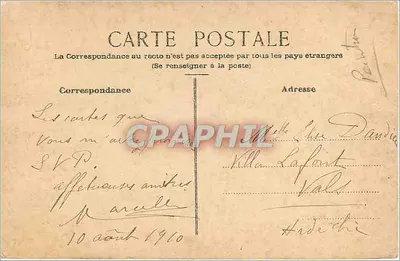 CARTE POSTALE
La Correspondance au recto n'est pas acceptée par tous les pays étrangers
(Se renseigner à la poste)
Correspondance
Adresse
Les cartes que
vous m'avez
S.V.P.
affectueuses amitiés
Marcelle
10 août 1910
CPAPHIL
Melle
Villa Lafont
Vals
Ardèche